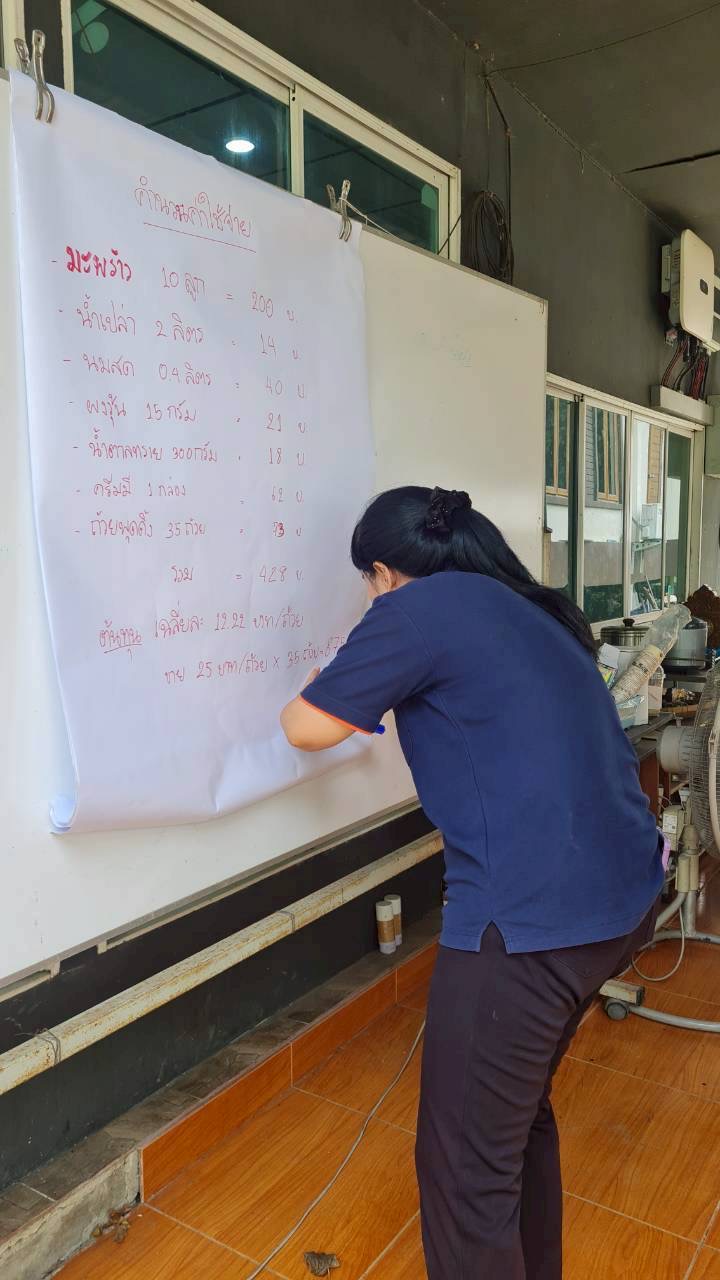 คำนวนค่าใช้จ่าย
- มะพร้าว 10 ลูก = 200 บ.
- น้ำเปล่า 2 ลิตร = 14 บ.
- นมสด 0.4 ลิตร = 40 บ
- ผงวุ้น 15 กรัม = 21 บ
- น้ำตาลทราย 300 กรัม = 18 บ
- ครีมมี 1 กล่อง = 62 บ
- ถ้วยพุดดิ้ง 35 ถ้วย = 73 บ
รวม = 428 บ.
ต้นทุน เฉลี่ยละ 12.22 บาท/ถ้วย
ขาย 25 บาท/ถ้วย × 35 ถ้วย = 875